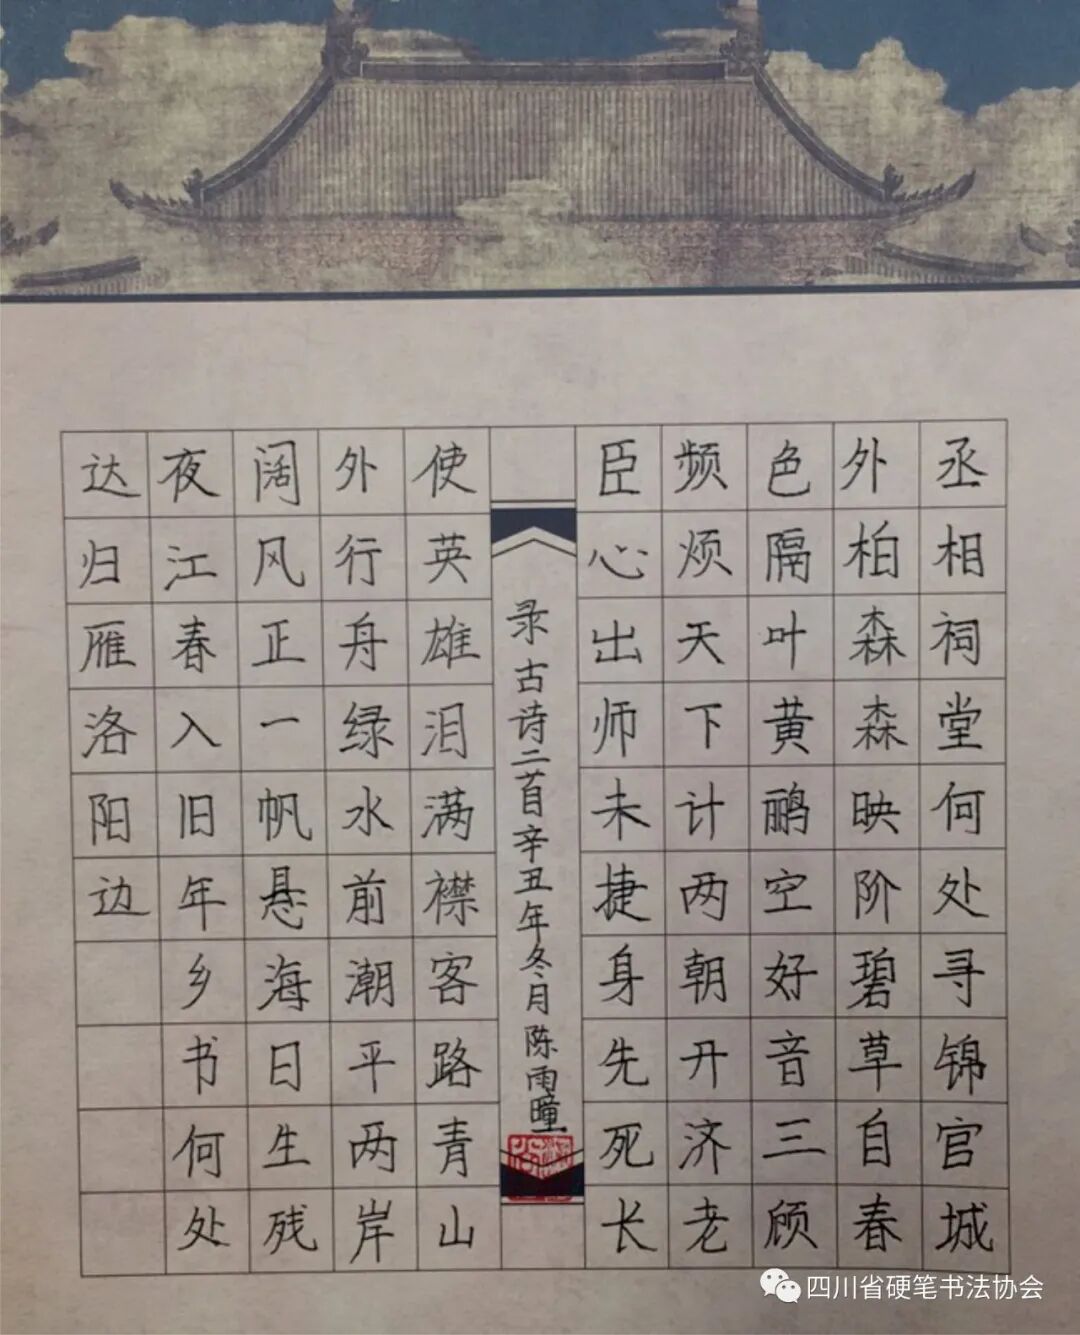 丞相祠堂何处寻锦官城
外柏森森映阶碧草自春
色隔叶黄鹂空好音三顾
频烦天下计两朝开济老
臣心出师未捷身先死长
录古诗二首辛丑年冬月陈雨曈
使英雄泪满襟客路青山
外行舟绿水前潮平两岸
阔风正一帆悬海日生残
夜江春入旧年乡书何处
达归雁洛阳边
四川省硬笔书法协会